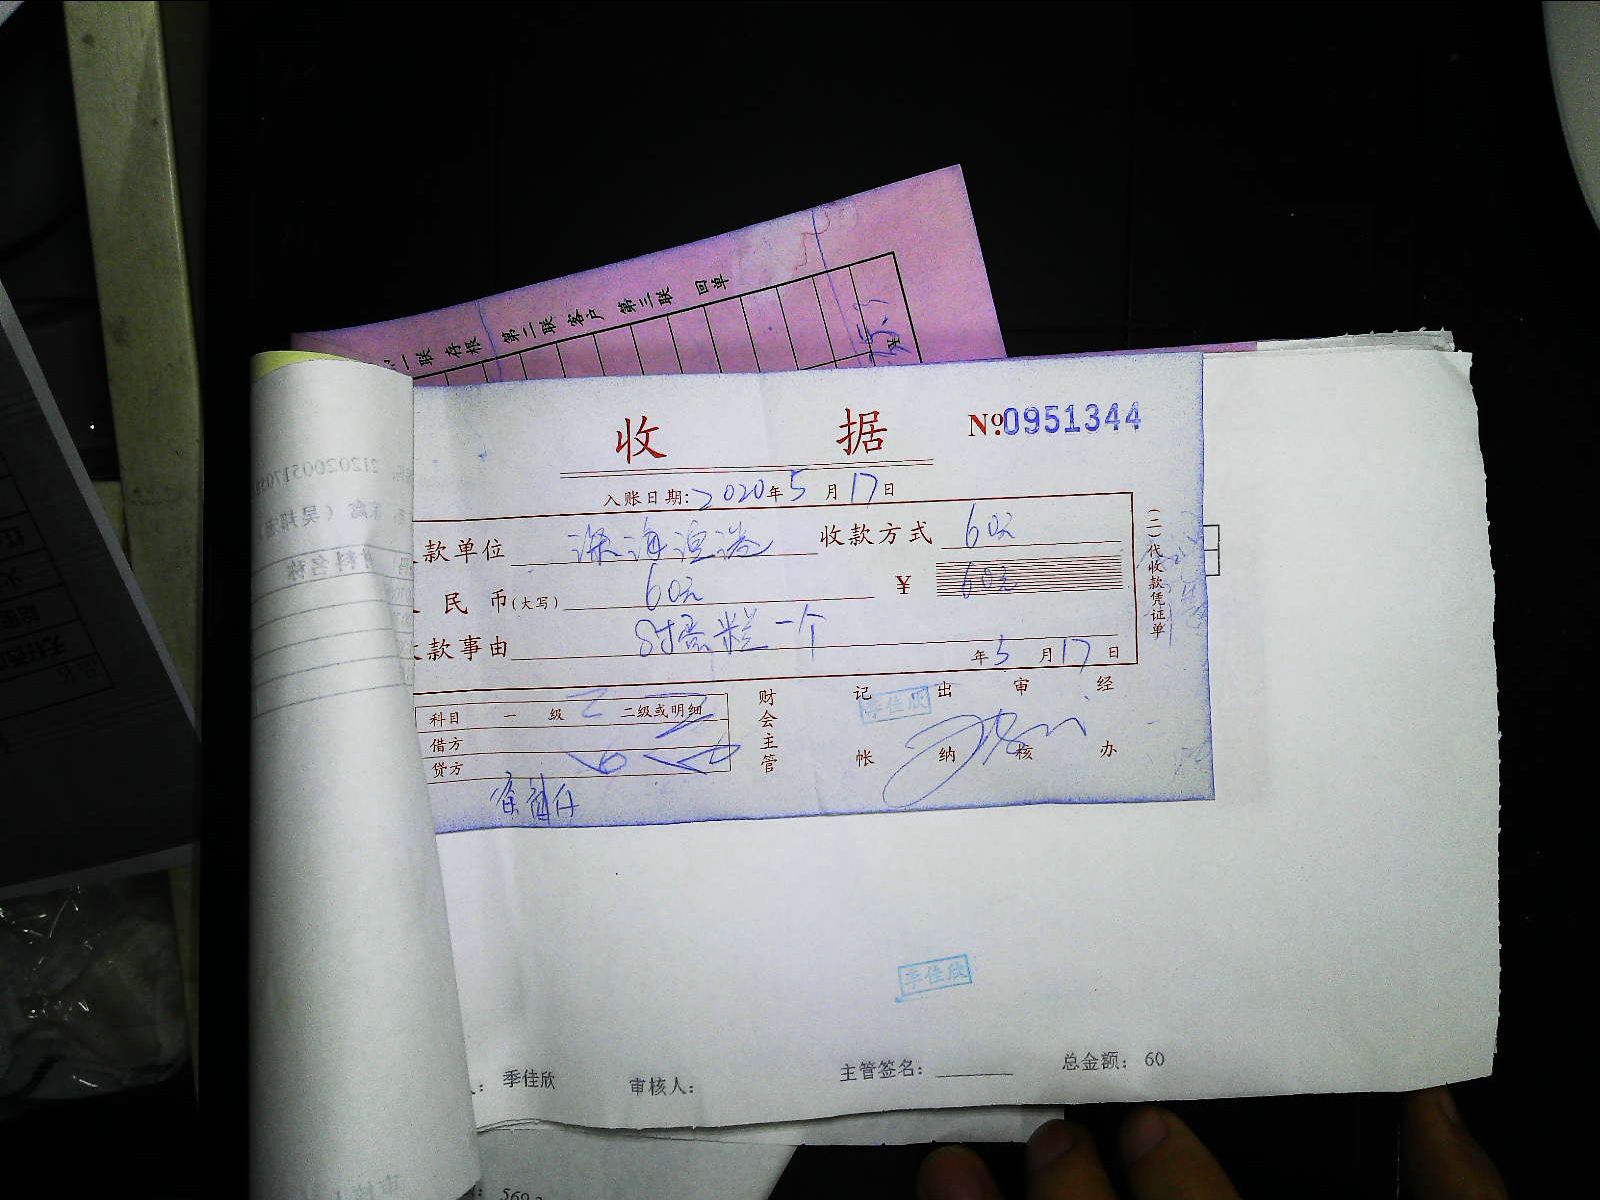 第一联 存根 第二联 客户 第三联 回单
收 据 No.0951344
入账日期:2020年5月17日
款单位 深海渔港 收款方式 60元
民币(大写) 60元 ¥ 60元
款事由 8寸蛋糕一个
年5月17日
(二)代收款凭证单
科目 一级 二级或明细
借方
贷方
财会主管 记帐 出纳 审核 经办
季佳欣
季佳欣
季佳欣 审核人: 主管签名: 总金额: 60
料名称
2120200517